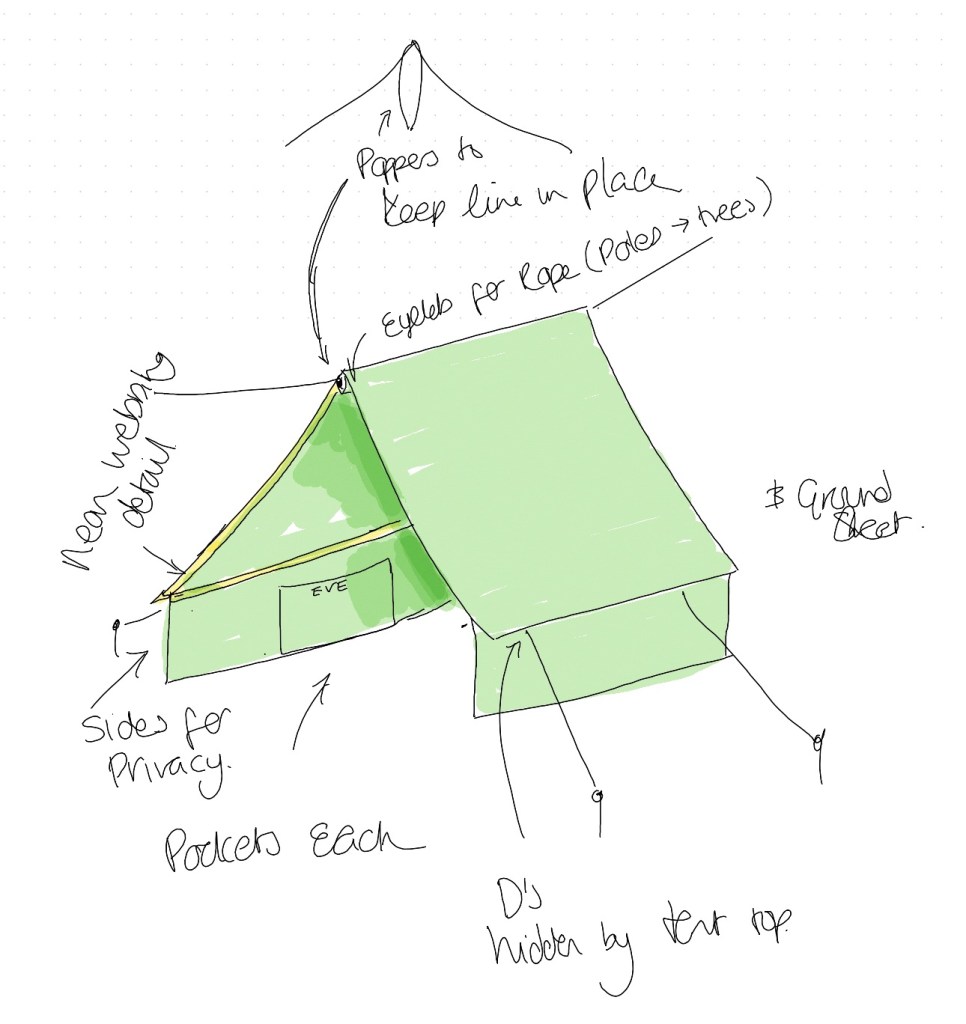 Poppers to
keep line in place
Eyelets for Rope (Poles → trees)
Neon webbing
detail
& Ground
Sheet.
EVE
Sides for
Privacy.
Pockets Each
D's
hidden by tent top